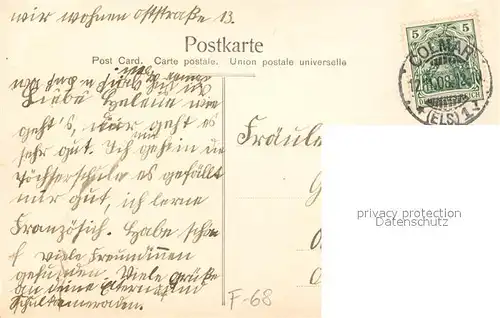 wir wohnen oststraße 13.
Postkarte
Post Card. Carte postale. Union postale universelle
5 5
COLMAR
(ELS)
Liebe Helene wie
geht's, mir geht es
sehr gut. Ich geh in die
Töchterschule es gefällt
mir gut, ich lerne
Französich. habe schon
viele Freundinen
gefunden. Viele Grüße
an deine Eltern und
Schulkameraden.
Fräule
privacy protection
Datenschutz
F-68